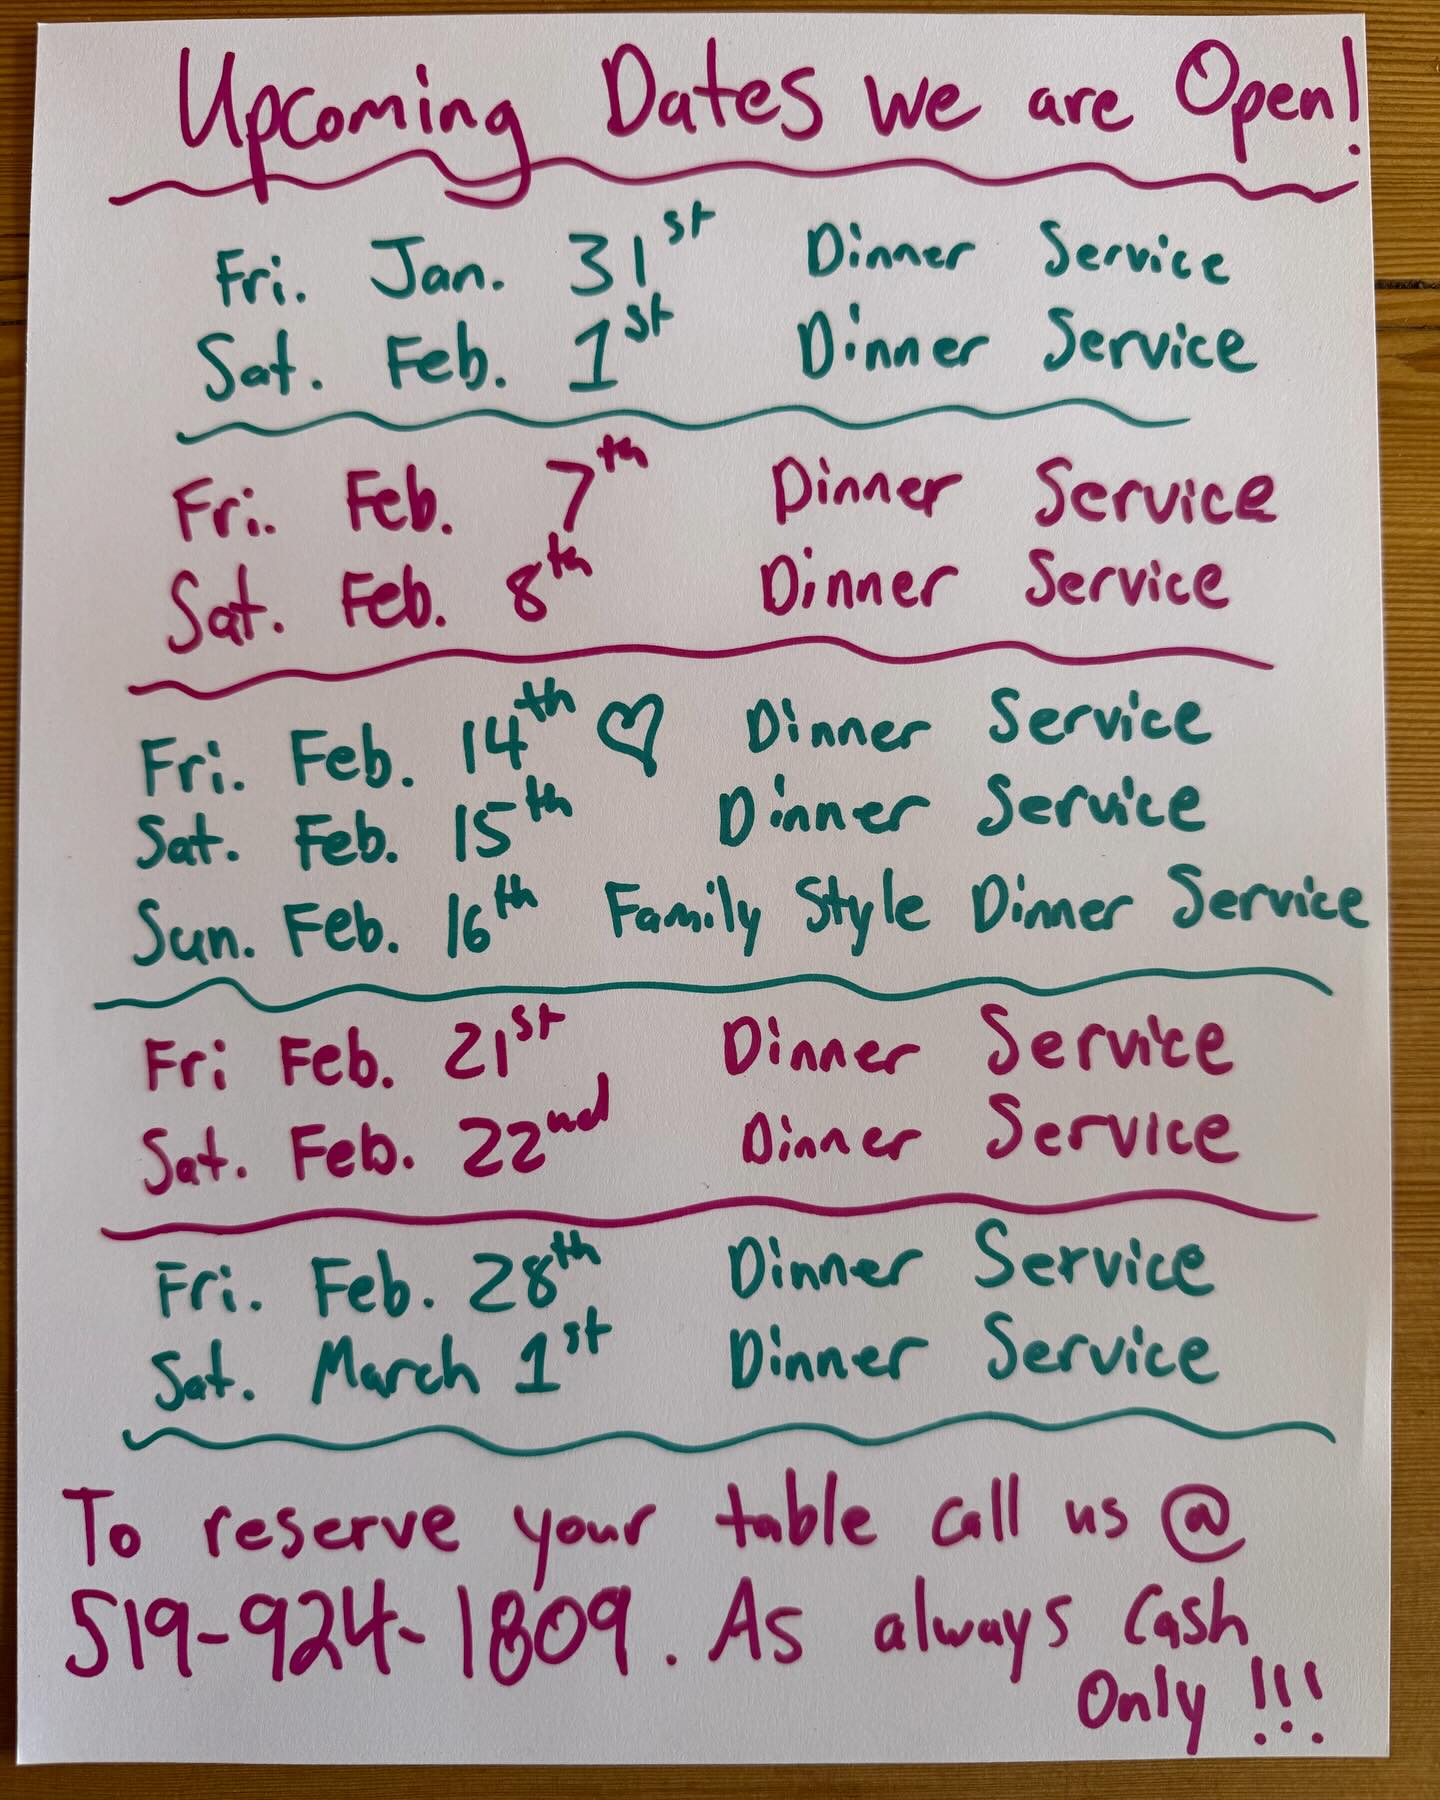 Upcoming Dates we are Open!
Fri. Jan. 31st Dinner Service
Sat. Feb. 1st Dinner Service
Fri. Feb. 7th Dinner Service
Sat. Feb. 8th Dinner Service
Fri. Feb. 14th ♡ Dinner Service
Sat. Feb. 15th Dinner Service
Sun. Feb. 16th Family Style Dinner Service
Fri Feb. 21st Dinner Service
Sat. Feb. 22nd Dinner Service
Fri. Feb. 28th Dinner Service
Sat. March 1st Dinner Service
To reserve your table call us @
519-924-1809. As always Cash
Only !!!